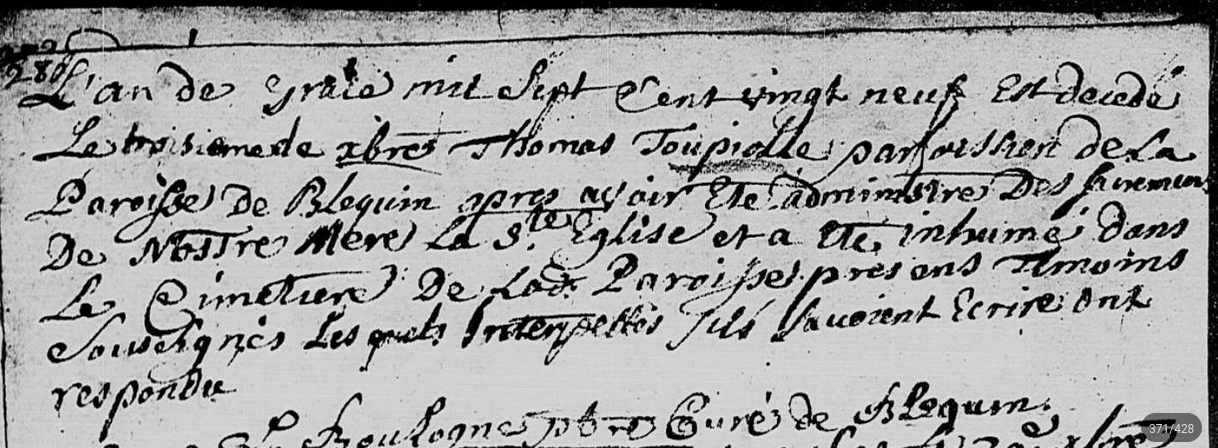 L'an de grace mil Sept Cent vingt neuf Est decedé
Le troisieme de xbre Thomas Toupiolle paroissien de La
Paroisse de Blequin apres avoir Eté administré Des sacremens
De Nostre Mere La Ste Eglise et a Eté inhumé dans
Le Cimetiere De Lad. Paroisse presens temoins
Soussignés Lesquels Interpellés s'ils savoient Ecrire ont
respondu
De Boulogne pbre Curé de Blequin
371/428